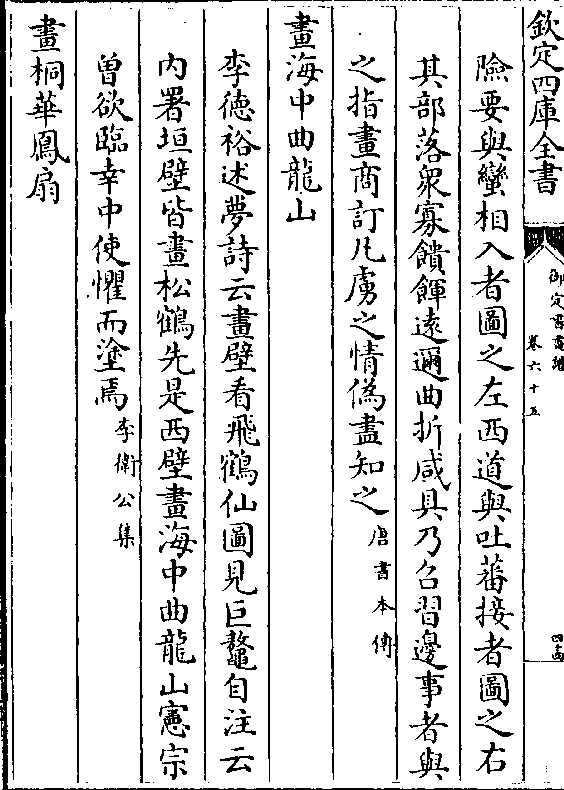 欽定四庫全書
御定書畫譜
卷六十五
險要與蠻相入者圖之左西道與吐蕃接者圖之右
其部落衆寡饋餫遠邇曲折咸具乃召習邊事者與
之指畫商訂凡虜之情偽盡知之唐書本傳
畫海中曲龍山
李德裕述夢詩云畫壁看飛鶴仙圖見巨鼇自注云
内署垣壁皆畫松鶴先是西壁畫海中曲龍山憲宗
曾欲臨幸中使懼而塗焉李衛公集
畫桐華鳳扇